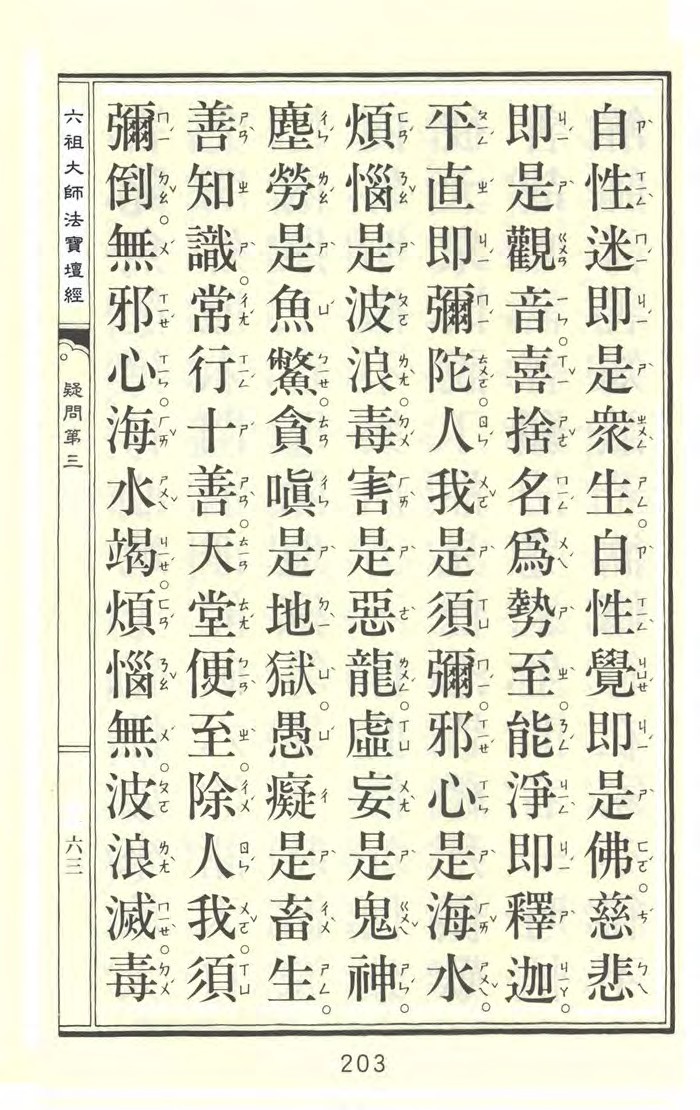 自性迷即是衆生。自性覺即是佛。慈悲
即是觀音。喜捨名爲勢至。能淨即釋迦。
平直即彌陀。人我是須彌。邪心是海水。
煩惱是波浪。毒害是惡龍。虛妄是鬼神。
塵勞是魚鱉。貪嗔是地獄。愚癡是畜生。
善知識。常行十善。天堂便至。除人我。須
彌倒。無邪心。海水竭。煩惱無。波浪滅。毒
六祖大師法寶壇經
疑問第三
六三
203